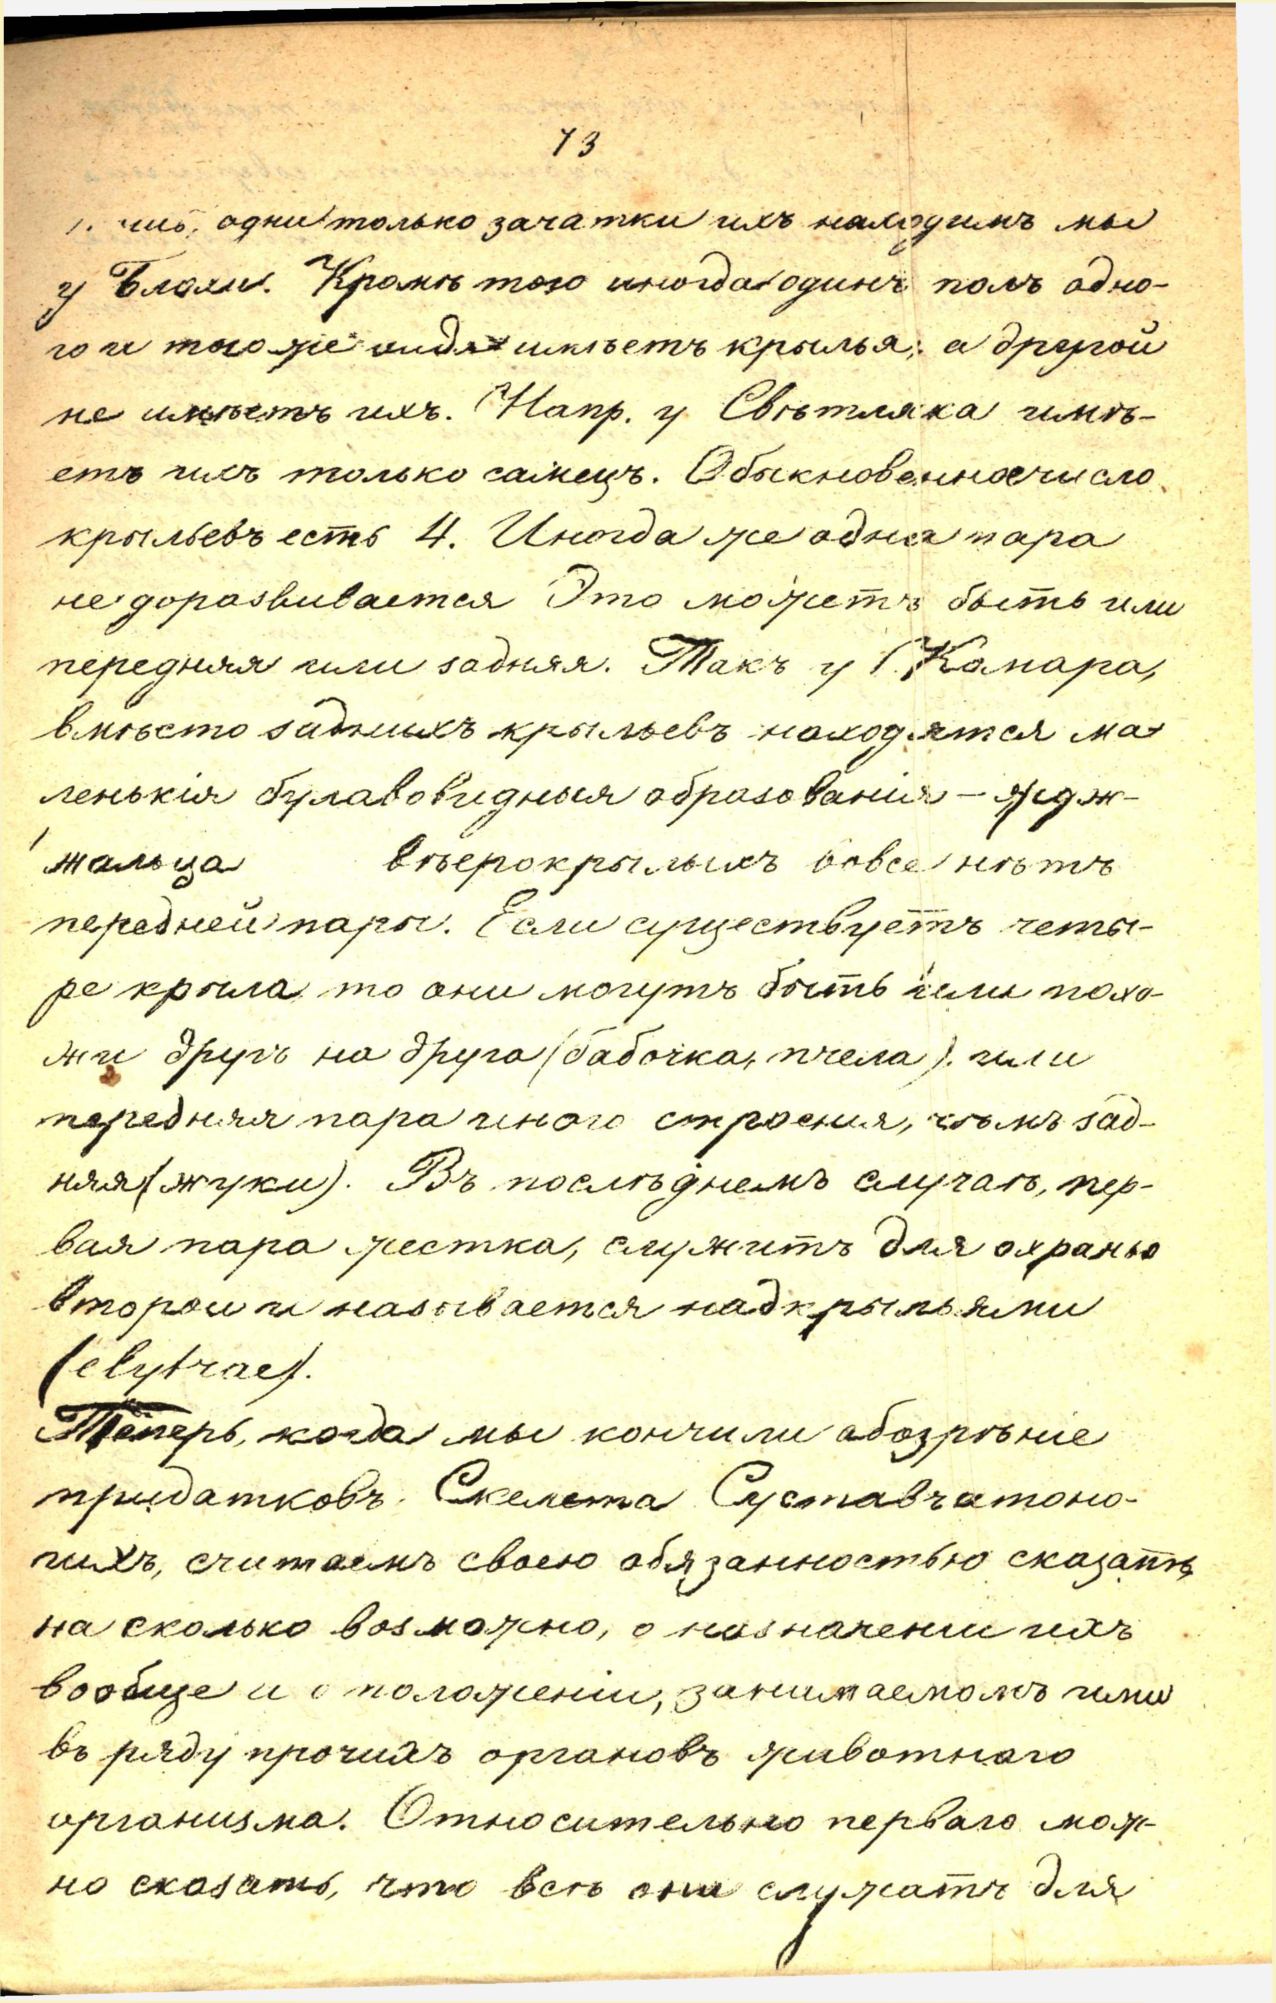 73
одни только зачатки ихъ находимъ мы
у Блохи. Кромѣ того иногда одинъ полъ одно-
го и того же вида имѣетъ крылья, а другой
не имѣетъ ихъ. Напр. у Свѣтляка имѣ-
етъ ихъ только самецъ. Обыкновенное число
крыльевъ есть 4. Иногда же одна пара
не доразвивается Это можетъ быть или
передняя или задняя. Такъ у Комара,
вмѣсто заднихъ крыльевъ находятся ма-
ленькія булавовидныя образованія —
жальца вѣерокрылыхъ вовсе нѣтъ
передней пары. Если существуетъ четы-
ре крыла, то они могутъ быть или похо-
жи другъ на друга (бабочка, пчела). или
передняя пара иного строения, чѣмъ зад-
няя (жуки). Въ послѣднемъ случаѣ, пер-
вая пара жестка, служитъ для охраны
второи и называется надкрыльями
(elytrae).
Теперь, когда мы кончили обозрѣніе
придатковъ Скелета Суставчатоно-
гихъ, считаемъ своею обязанностью сказать,
на сколько возможно, о назначении ихъ
вообще и о положеніи, занимаемомъ ими
въ ряду прочихъ органовъ животнаго
организма. Относительно перваго мож-
но сказать, что всѣ они служатъ для